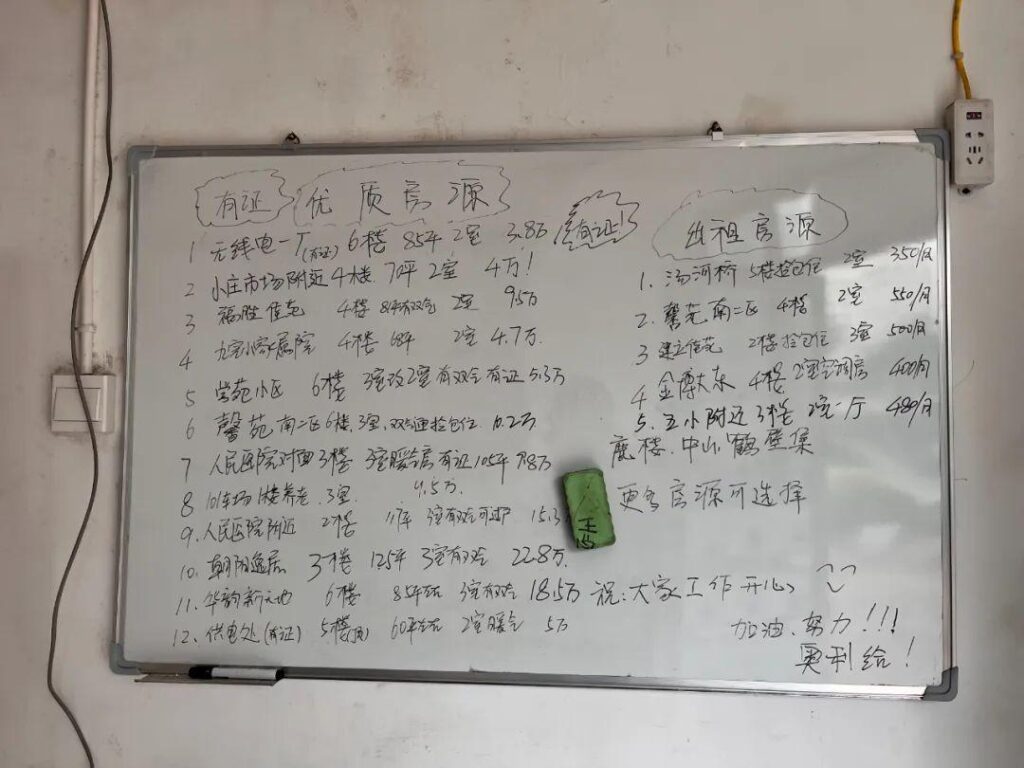 有证 优质房源
1 无线电一厂(有证) 6楼 85平 2室 3.8万 有证!
2 小庄市场附近 4楼 70平 2室 4万!
3 福胜佳苑 4楼 有双气 2室 9.5万
4 家属院 4楼 68平 2室 4.7万.
5 学苑小区 6楼 3室改2室 有双气 有证 5.3万
6 馨苑南二区 6楼, 3室, 拎包住
7 人民医院对面 3楼 3室暖气房 有证 105平 7.8万
8 101车场 1楼养老. 3室. 4.5万.
9. 人民医院附近 2楼 3室有双气 15.3
10. 朝阳逸居 3楼 125平 3室有双气 22.8万.
11. 华韵新天地 6楼 85平 3室有双气 18.5万
12. 供电处(有证) 5楼 60平 2室暖气 5万
出租房源
1. 汤河桥 5楼拎包住 2室 350/月
2. 馨苑南二区 4楼 2室 550/月
3 建立佳苑 2楼拎包住 3室 500/月
4 金博大东 4楼 2室空调房 400/月
5. 五小附近 3楼 2室一厅 480/月
鹿楼. 中山. 鹤壁集
更多房源可选择
祝:大家工作开心
加油、努力!!!
奥利给!